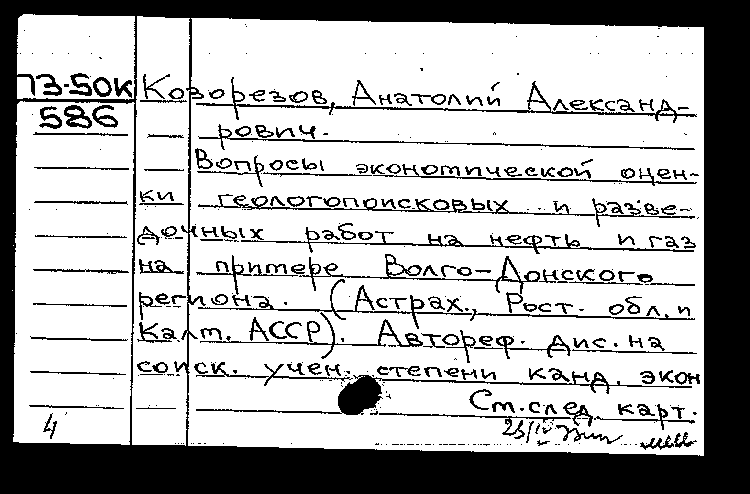 73-50К Козорезов, Анатолий Александ-
586 рович.
Вопросы экономической оцен-
ки геологопоисковых и разве-
дочных работ на нефть и газ
на примере Волго-Донского
региона. (Астрах., Рост. обл. и
Калм. АССР). Автореф. дис. на
соиск. учен. степени канд. экон
См. след. карт.
4